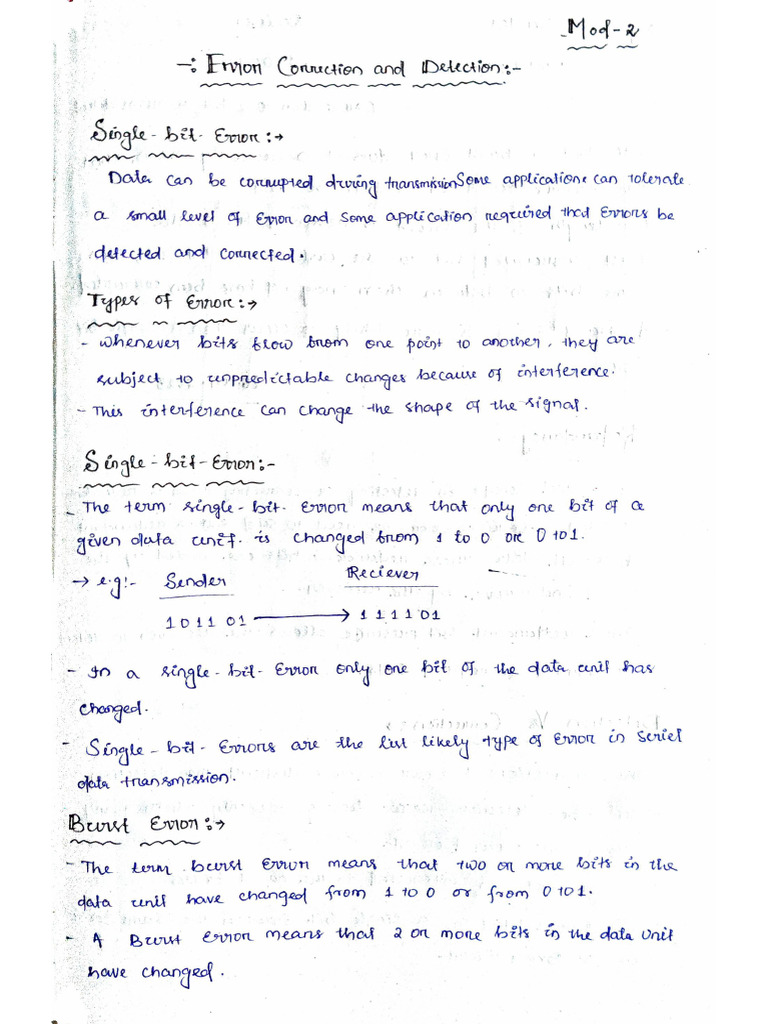 Mod-2
-: Error Correction and Detection:-
Single-bit-Error:→
Data can be corrupted during transmission Some applications can tolerate
a small level of Error and some application required that Errors be
detected and corrected.
Types of Error:→
- Whenever bits flow from one point to another, they are
subject to unpredictable changes because of interference.
- This interference can change the shape of the signal.
Single-bit-Error:-
- The term single-bit-Error means that only one bit of a
given data unit is changed from 1 to 0 or 0 to 1.
→ e.g:- Sender Reciever
101101 → 111101
- In a single-bit-Error only one bit of the data unit has
changed.
- Single-bit-Errors are the list likely type of Error in seriel
data transmission.
Burst Error:→
- The term burst Error means that two or more bits in the
data unit have changed from 1 to 0 or from 0 to 1.
- A Burst Error means that 2 or more bits in the data unit
have changed.